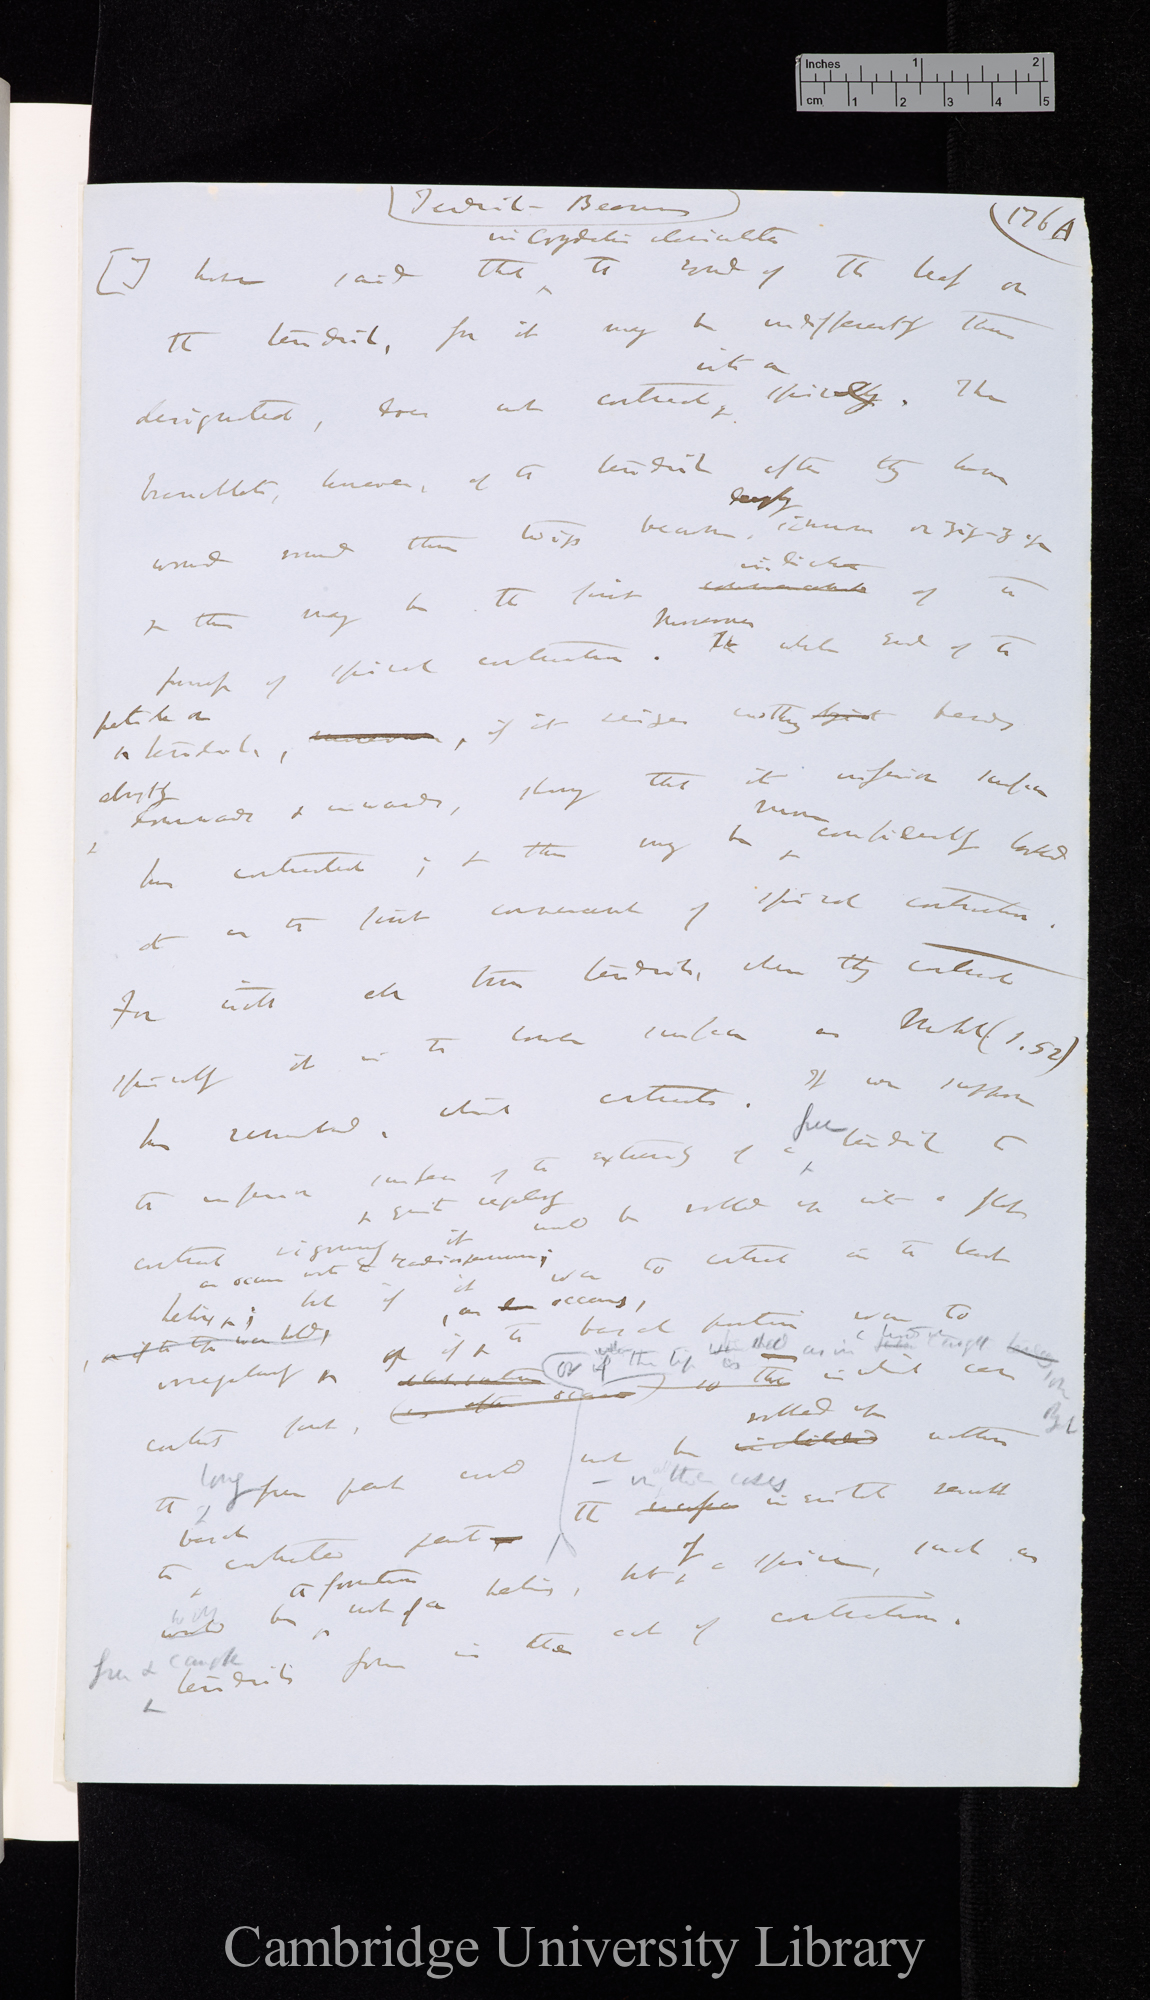 Inches 1 2
cm 1 2 3 4 5
Tendril-Bearers
176A
in Corydalis claviculata
[I] have said that the end of the leaf or
the tendril, for it may be indifferently thus
into a
designated, does not contract spirally. The
branchlets, however, of the tendril after they have
deeply
wound round thin twigs become sinuous or zig-zag
indication
& this may be the first commencement of the
Moreover
process of spiral contraction. The whole end of the
petiole or
tendril, moreover, if it seizes nothing bends
abruptly
downwards & inwards, showing that its inferior surface
more
has contracted; & this may be confidently looked
at as the first commencement of spiral contraction.
For with all true tendrils, when they contract
spirally it is the lower surface as Mohl (p. 52)
has remarked, which contracts. If we suppose
free
the inferior surface of the extremity of a tendril to
& quite regularly
contract vigorously it would be rolled up into a flat
helix; but if it was to contract in the least
, as occurs,
irregularly or if the basal portion was to
or if the tip as in
contract first, (as often occurs) so that in which case
rolled up
long
the free part could not be included within
– in other cases
basal
the contracted part, the inevitable result
the formation
would be not of a helix, but of a spire, such as
free & caught
tendrils form in the act of contraction.
Cambridge University Library